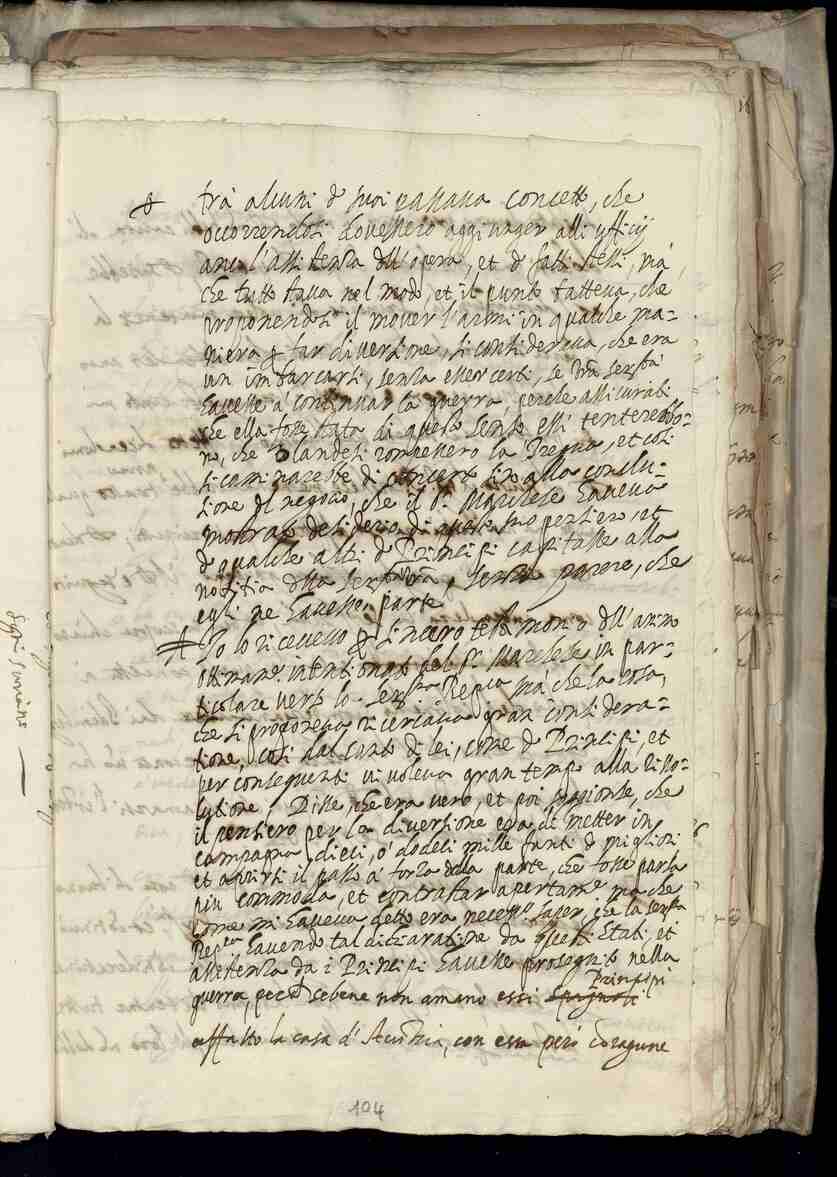 trà alcuni de suoi passava concetto, che
occorrendosi dovessero aggiunger alli ufficij
anco l'assistenza dell'opera, et de fatti stessi, mà
che tutto stava nel modo, et il punto batteva, che
proponendosi il mover l'armi in qualche ma=
niera per far diversione, si considerava, che era
un imbarcarsi, senza esser certi, se Vra Sertà
havesse à continuar la guerra, perche assicurati
che ella fosse stata di questo senso essi tenterebbo=
no, che Olandesi rompessero la Tregua, et così
si caminarebbe di concerto sino alla conclu=
sione del negocio, che il sr. Marchese haveva
mostrato desiderio, di questo suo pensiero, et
de qualche altri de Principi capitasse alla
notitia della Sertà vra, senza parere, che
egli ne havesse parte
Io lo ricevevo per sincero testimonio dell'animo
ottimamte intentionato del sr. Marchese in par=
ticolare verso la Serma Repca mà che la cosa,
che si proponeva ricercava gran considera=
tione, così dal canto di lei, come de Principi, et
per consequenti vi voleva gran tempo alla riso=
lutione. Disse, che era vero, et poi soggionse, che
il pensiero per la diversione era di metter in
campagna dieci, ò dodeci mille fanti de migliori
et aprirsi il passo à forza dalla parte, che fosse parsa
più commoda, et contrastar apertamte ma che
come mi haveva detto era necesso saper, che la Serma
Repca havendo tal dichiaratione da questi Stati, et
assistenza da i Principi havesse proseguito nella
Principi
guerra, perche sebene non amano essi Spagnoli
affatto la casa d'Austria, con essa però coragune
104